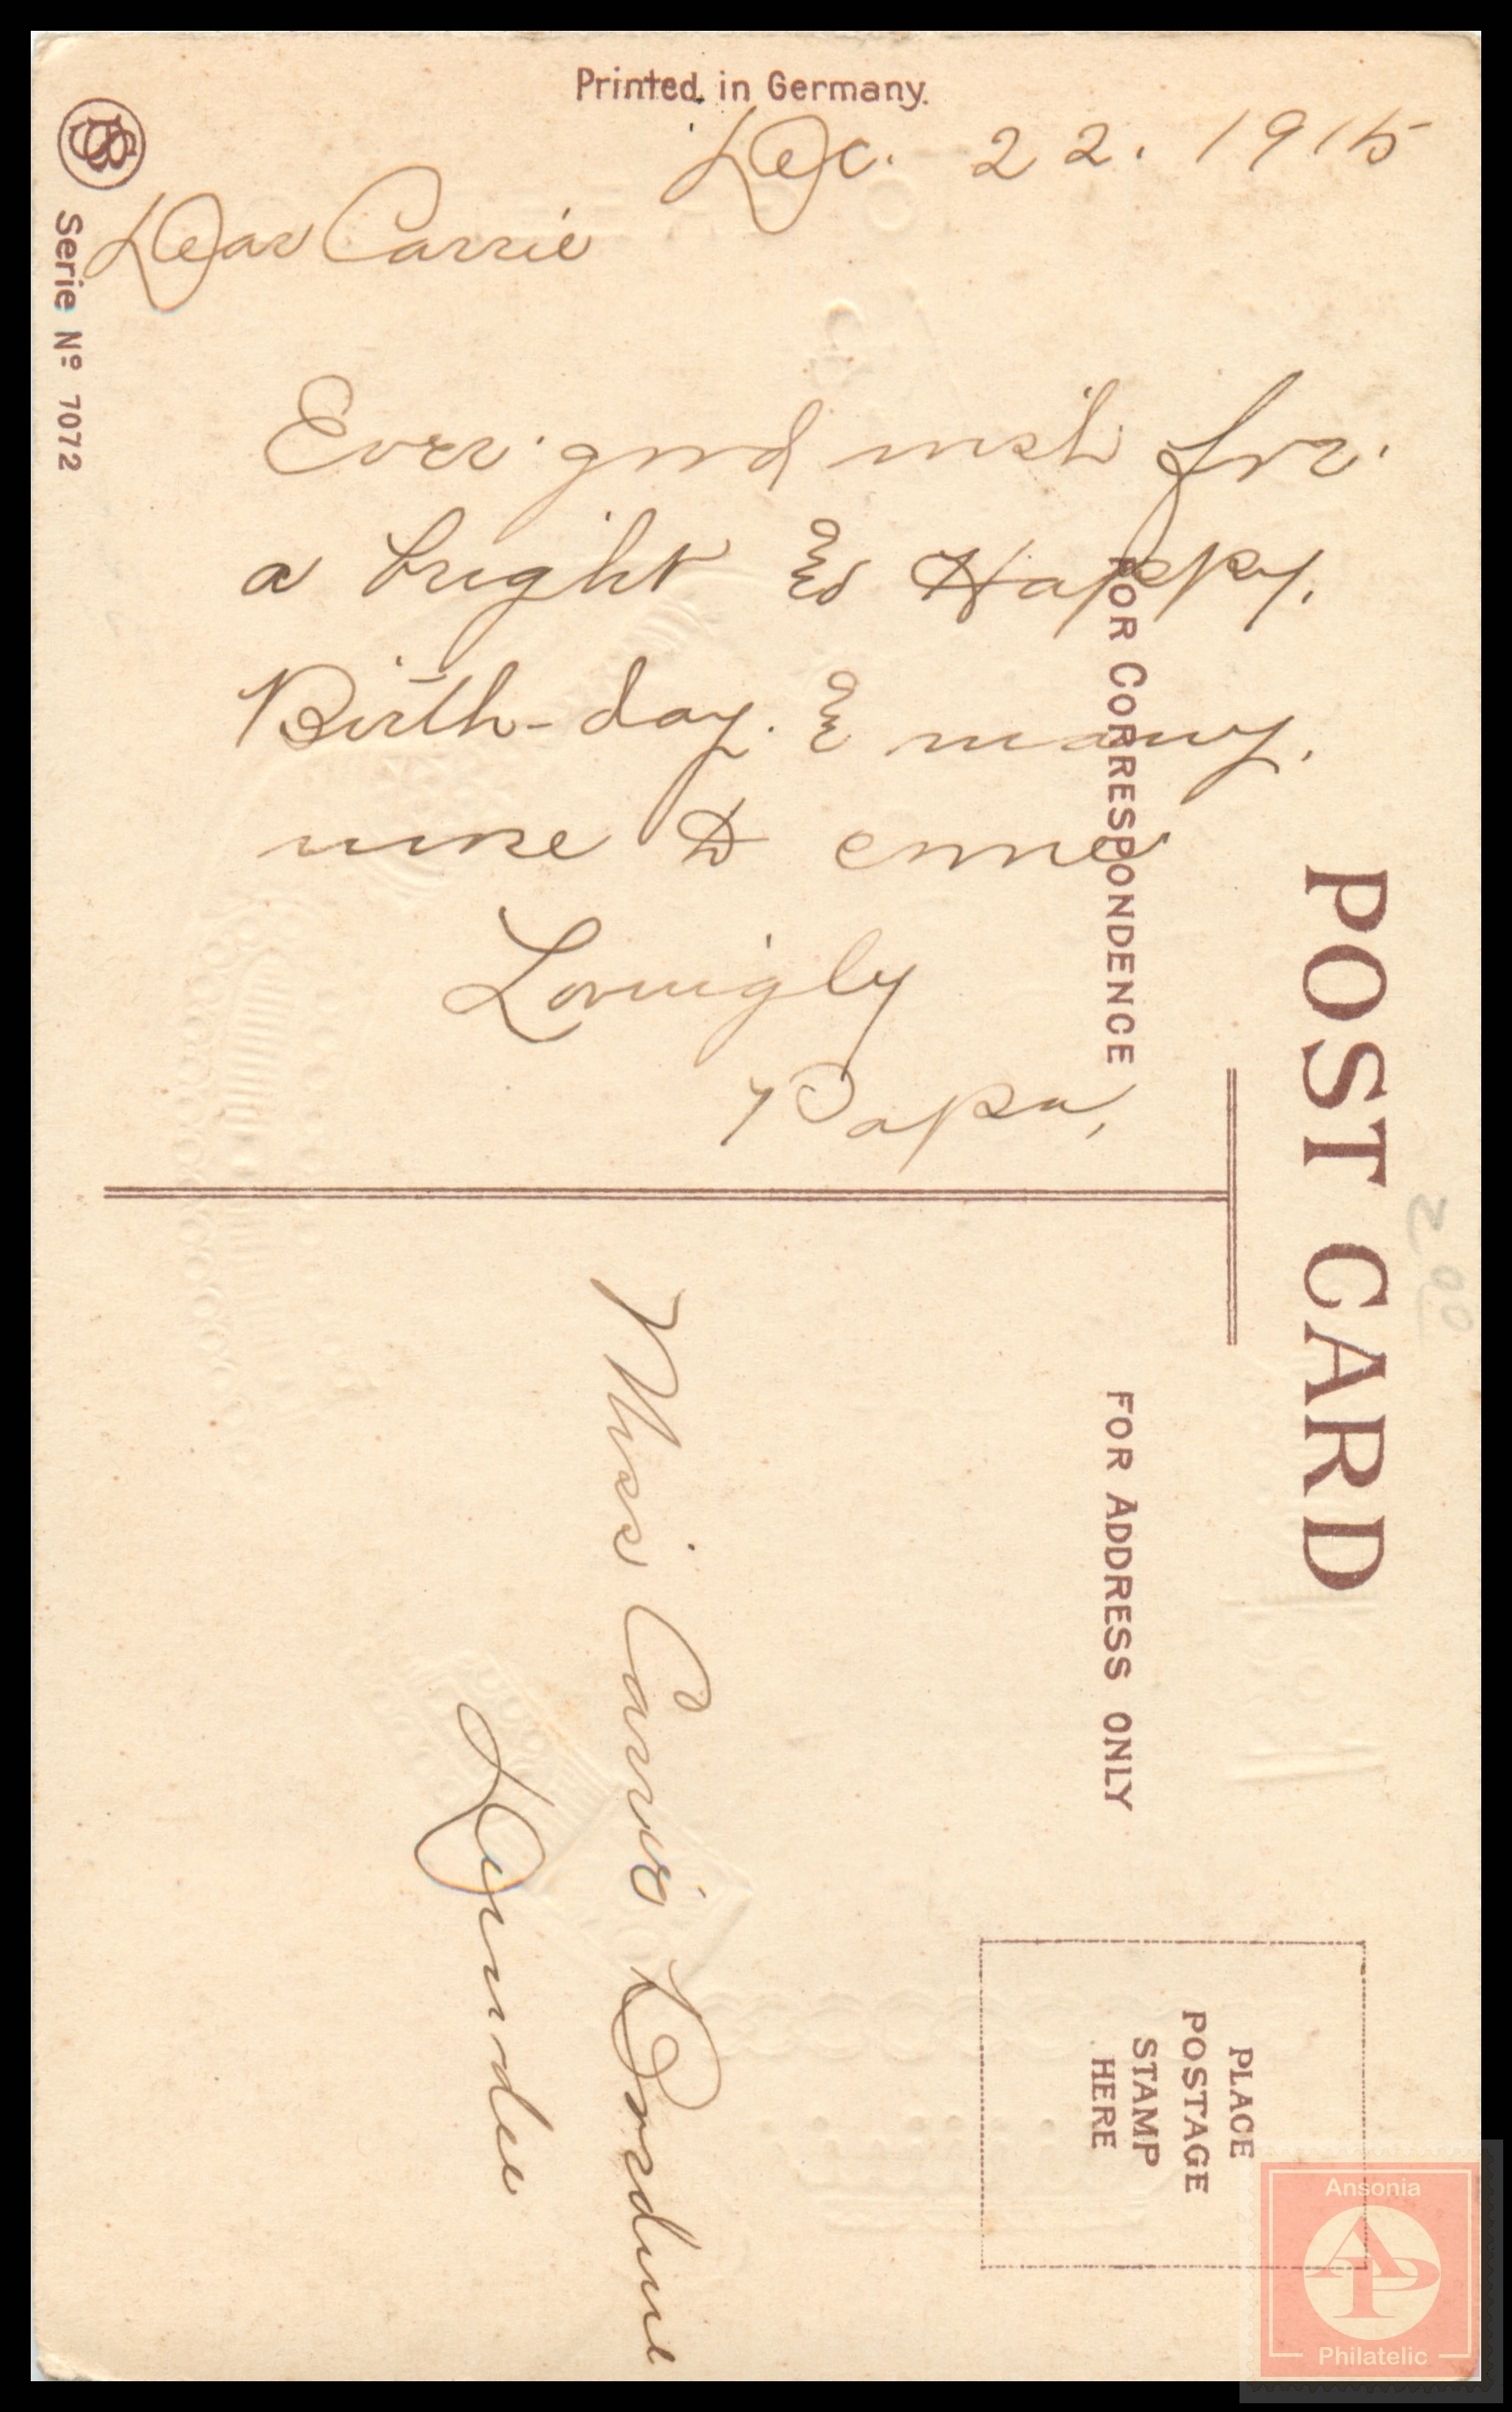 Printed in Germany.
Dec. 22. 1915
Dear Carrie
Ever good wish for
a bright & Happy.
Birth-day. & many.
more to come
Lovingly
Papa,
Serie No 7072
POST CARD
FOR CORRESPONDENCE
FOR ADDRESS ONLY
PLACE
POSTAGE
STAMP
HERE
Miss Carrie
Dundee
2.00
Ansonia
AP
Philatelic